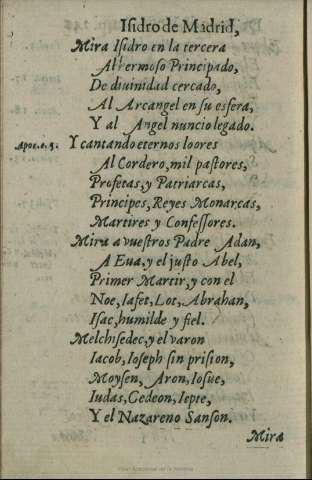 Isidro de Madrid,
Mira Isidro en la tercera
Al hermoso Principado,
De diuinidad cercado,
Al Arcangel en su esfera,
Y al Angel nuncio legado.
Apoc. c. 5. Y cantando eternos loores
Al Cordero, mil pastores,
Profetas, y Patriarcas,
Principes, Reyes Monarcas,
Martires y Confessores.
Mira a vuestros Padre Adan,
A Eua, y el justo Abel,
Primer Martir, y con el
Noe, Iafet, Lot, Abrahan,
Isac, humilde y fiel.
Melchisedec, y el varon
Iacob, Ioseph sin prision,
Moysen, Aron, Iosue,
Iudas, Gedeon, Iepte,
Y el Nazareno Sanson.
Mira